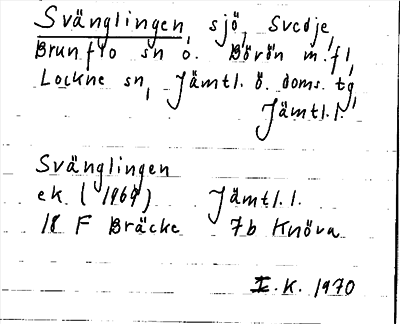 Svänglingen, sjö, Svedje,
Brunflo sn o. Börön m.fl,
Lockne sn, Jämtl. ö. doms. tg,
Jämtl.l.
Svänglingen
ek (1969) Jämtl.l.
18 F Bräcke 7b Knöva
I.K. 1970